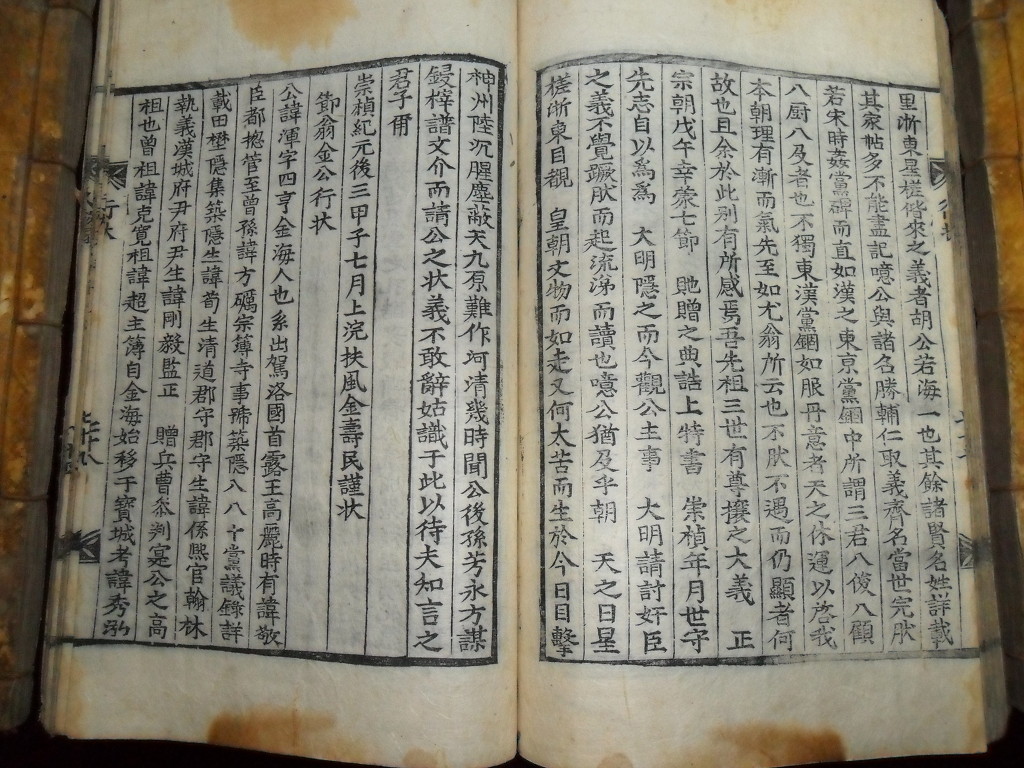 里浙東星槎偕來之義者胡公若海一也其餘諸賢名姓詳載
其家帖多不能盡記噫公與諸名勝輔仁取義齊名當世完肰
若宋時姦黨碑而直如漢之東京黨錮中所謂三君八俊八顧
八厨八及者也不獨東漢黨錮如服丹意者天之休運以啓我
本朝理有漸而氣先至如尤翁所云也不肰不遇而仍顯者何
故也且余於此別有所感焉吾先祖三世有尊攘之大義 正
宗朝戊午幸蒙七節 貤贈之典誥上特書 崇禎年月世守
先志自以爲爲 大明隱之而今觀公主事 大明請討奸臣
之義不覺蹶肰而起流涕而讀也噫公猶及乎朝 天之日星
槎浙東目覩 皇朝文物而如走又何太苦而生於今日目擊
神州陸沉腥塵蔽天九原難作河清幾時聞公後孫芳永方謀
鋟梓譜文介而請公之状義不敢辭姑識于此以待夫知言之
君子甭
崇禎紀元後三甲子七月上浣扶風金壽民謹状
節翁金公行状
公諱渾字四亨金海人也系出駕洛國首露王高麗時有諱敬
臣都摠管至曾孫諱方礪宗簿寺事號築隱八八十黨議錄詳
載田壄隱集築隱生諱荀生清道郡守郡守生諱係熙官翰林
執義漢城府尹府尹生諱剛毅監正 贈兵曹叅判寔公之高
祖也曾祖諱克寬祖諱超主簿自金海始移于寶城考諱秀泓
行状